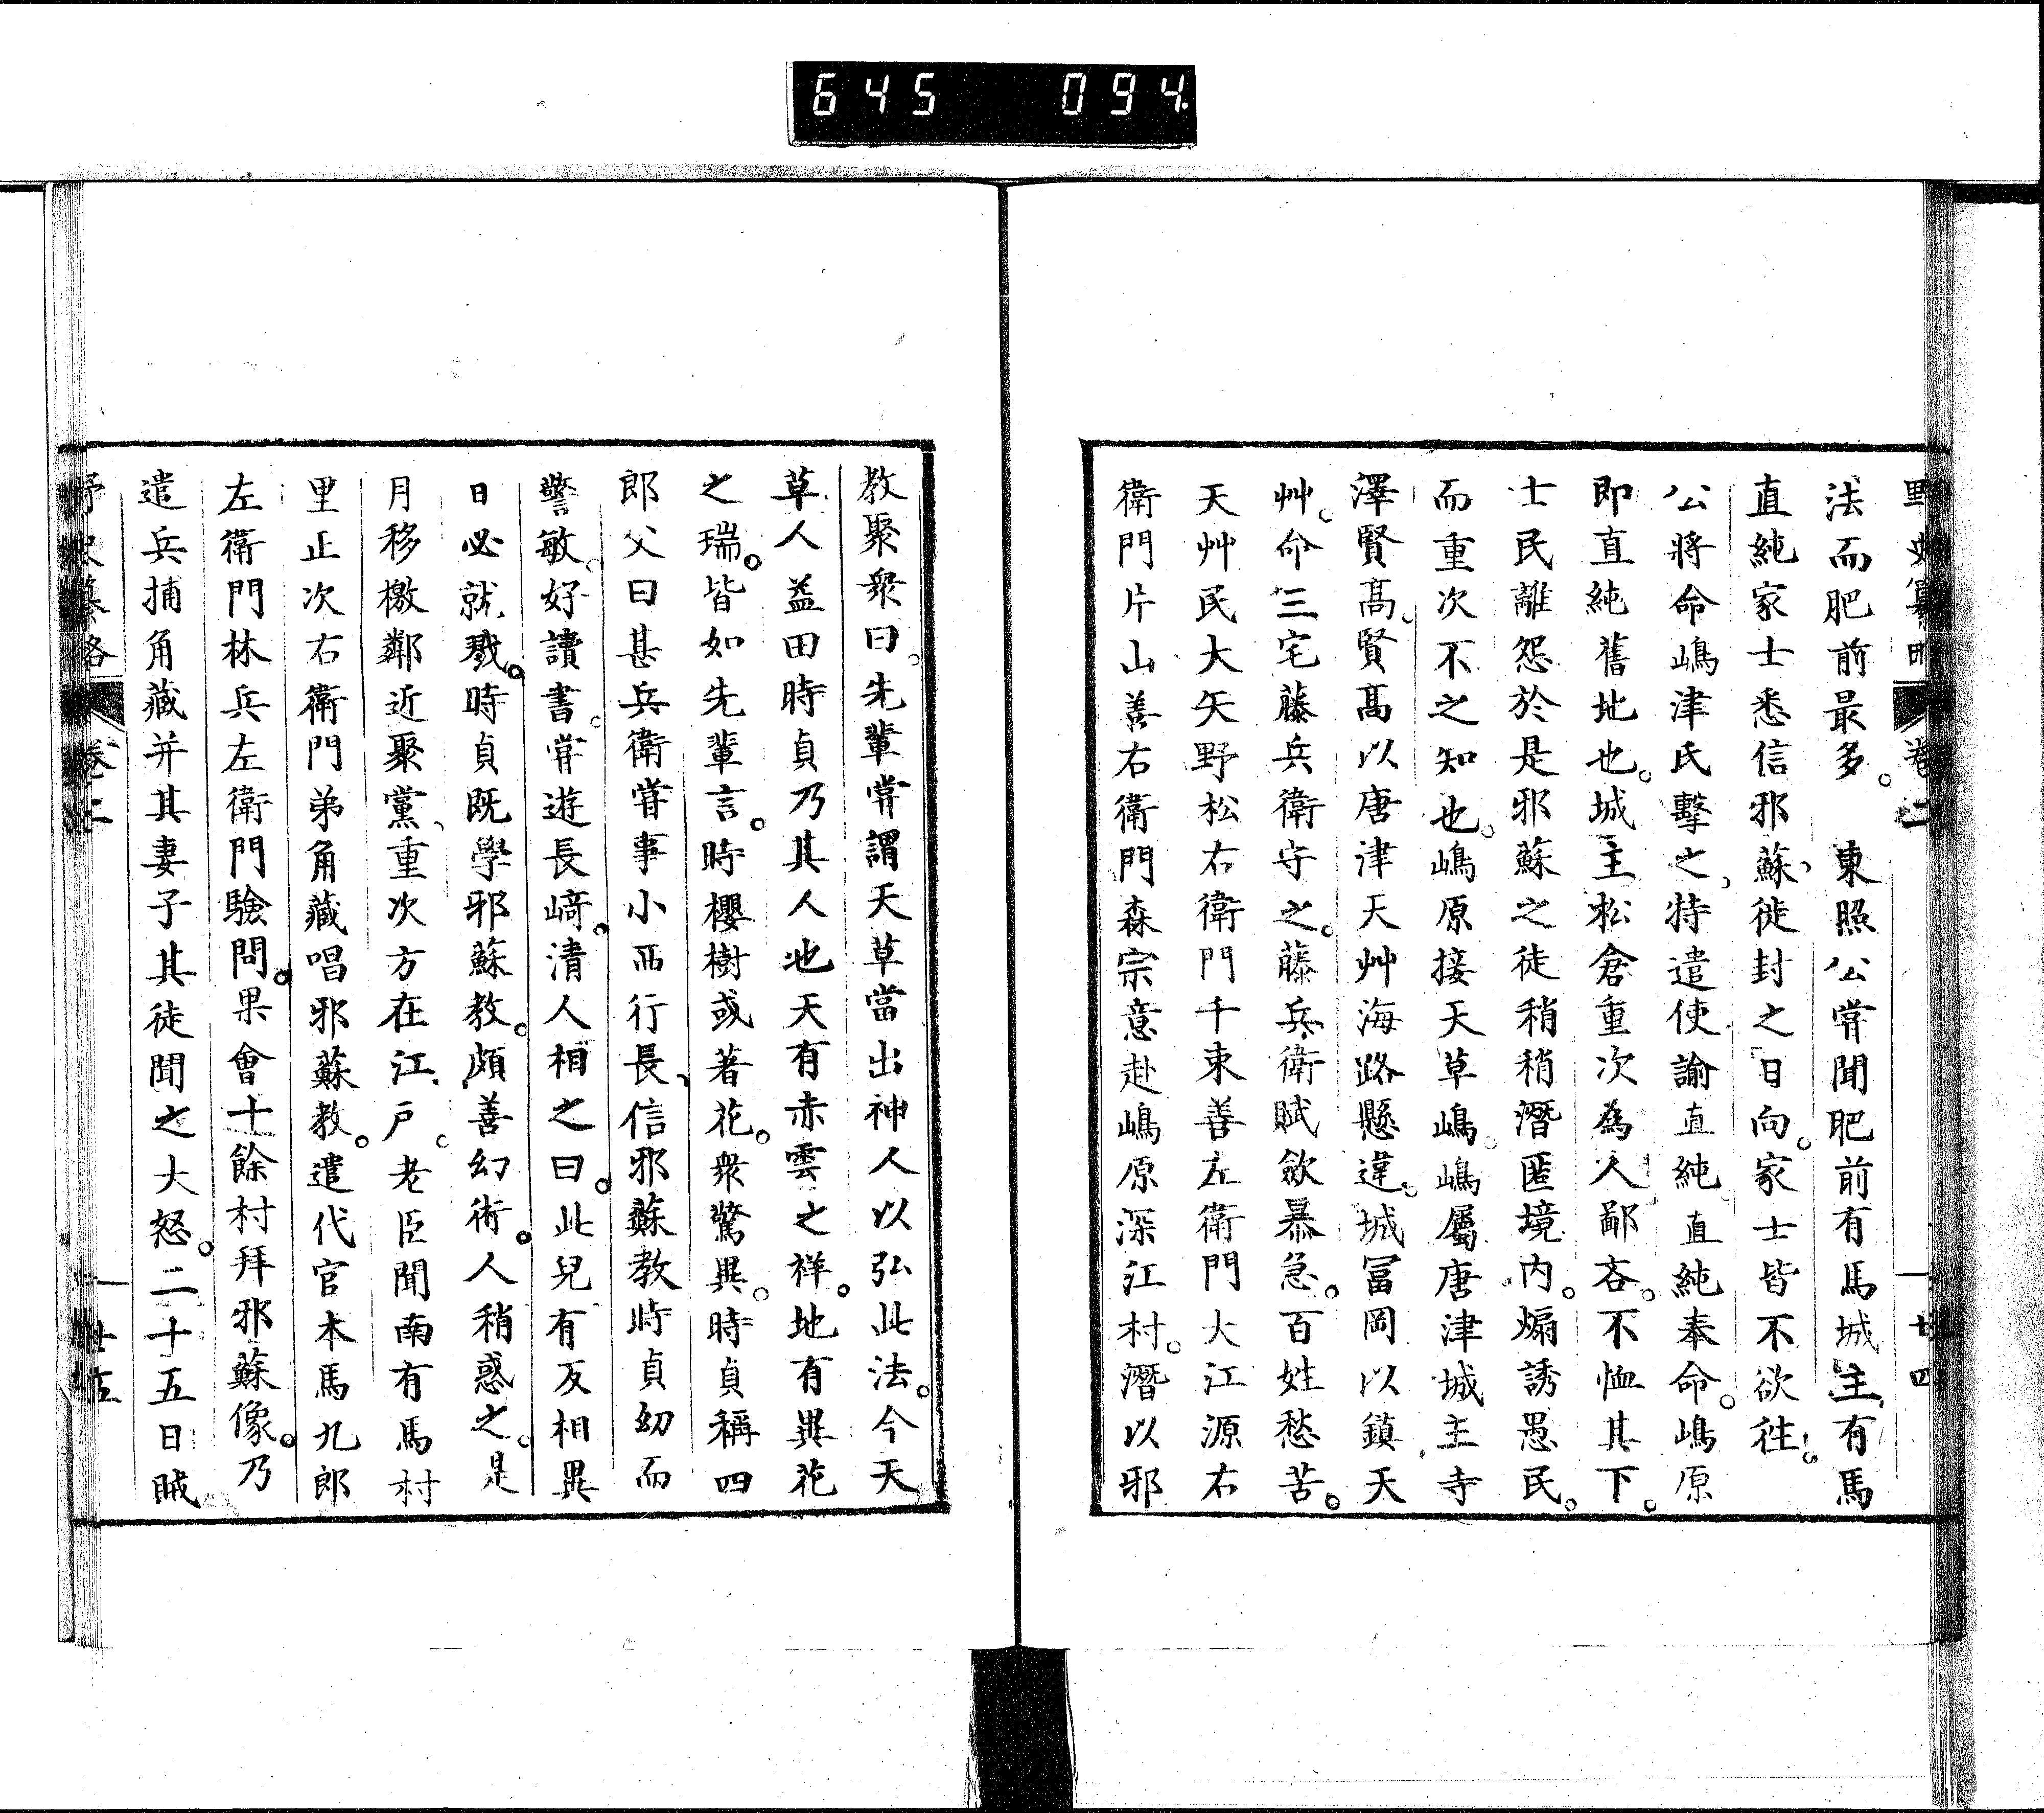 645 094
野史纂略 卷二 廿四
法而肥前最多。 東照公嘗聞肥前有馬城主有馬
直純家士悉信邪蘇、徙封之日向。家士皆不欲往。
公將命嶋津氏擊之、特遣使諭直純。直純奉命。嶋原
即直純舊地也。城主松倉重次為人鄙吝。不恤其下。
士民離怨於是邪蘇之徒稍稍潛匿境内。煽誘愚民。
而重次不之知也。嶋原接天草嶋。嶋屬唐津城主寺
澤賢髙。賢髙以唐津天艸海路懸違。城冨岡以鎮天
艸。命三宅藤兵衛守之。藤兵衛賦斂暴急。百姓愁苦。
天艸民大矢野松右衛門千束善左衛門大江源右
衛門片山善右衛門森宗意赴嶋原深江村。潛以邪
教聚衆曰。先輩嘗謂天草當出神人以弘此法。今天
草人益田時貞乃其人也天有赤雲之祥。地有異花
之瑞。皆如先輩言。時櫻樹或著花。衆驚異。時貞稱四
郎父曰甚兵衛嘗事小西行長、信邪蘇教時貞幼而
警敏。好讀書。嘗遊長崎。清人相之曰。此兒有反相異
日必就戮。時貞既學邪蘇教。頗善幻術。人稍惑之。是
月移檄鄰近聚黨、重次方在江戸。老臣聞南有馬村
里正次右衛門弟角藏唱邪蘇教。遣代官本馬九郎
左衛門林兵左衛門驗問。果會十餘村拜邪蘇像。乃
遣兵捕角藏并其妻子其徒聞之大怒。二十五日賊
野史纂略 卷二 廿五